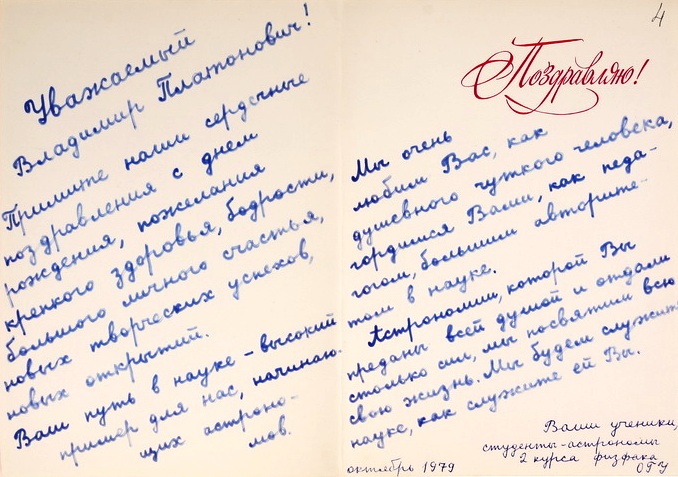 Уважаемый
Владимир Платонович!
Примите наши сердечные
поздравления с днем
рождения, пожелания
крепкого здоровья, бодрости,
большого личного счастья,
новых творческих успехов,
новых открытий.
Ваш путь в науке - высокий
пример для нас, начинаю-
щих астроно-
мов.
4
Поздравляю!
Мы очень
любим Вас, как
душевного чуткого человека,
гордимся Вами, как педа-
гогом, большим авторите-
том в науке.
Астрономии, которой Вы
преданы всей душой и отдали
столько сил, мы посвятим всю
свою жизнь. Мы будем служить
науке, как служите ей Вы.
Ваши ученики,
студенты-астрономы
2 курса физфака
ОГУ
октябрь 1979